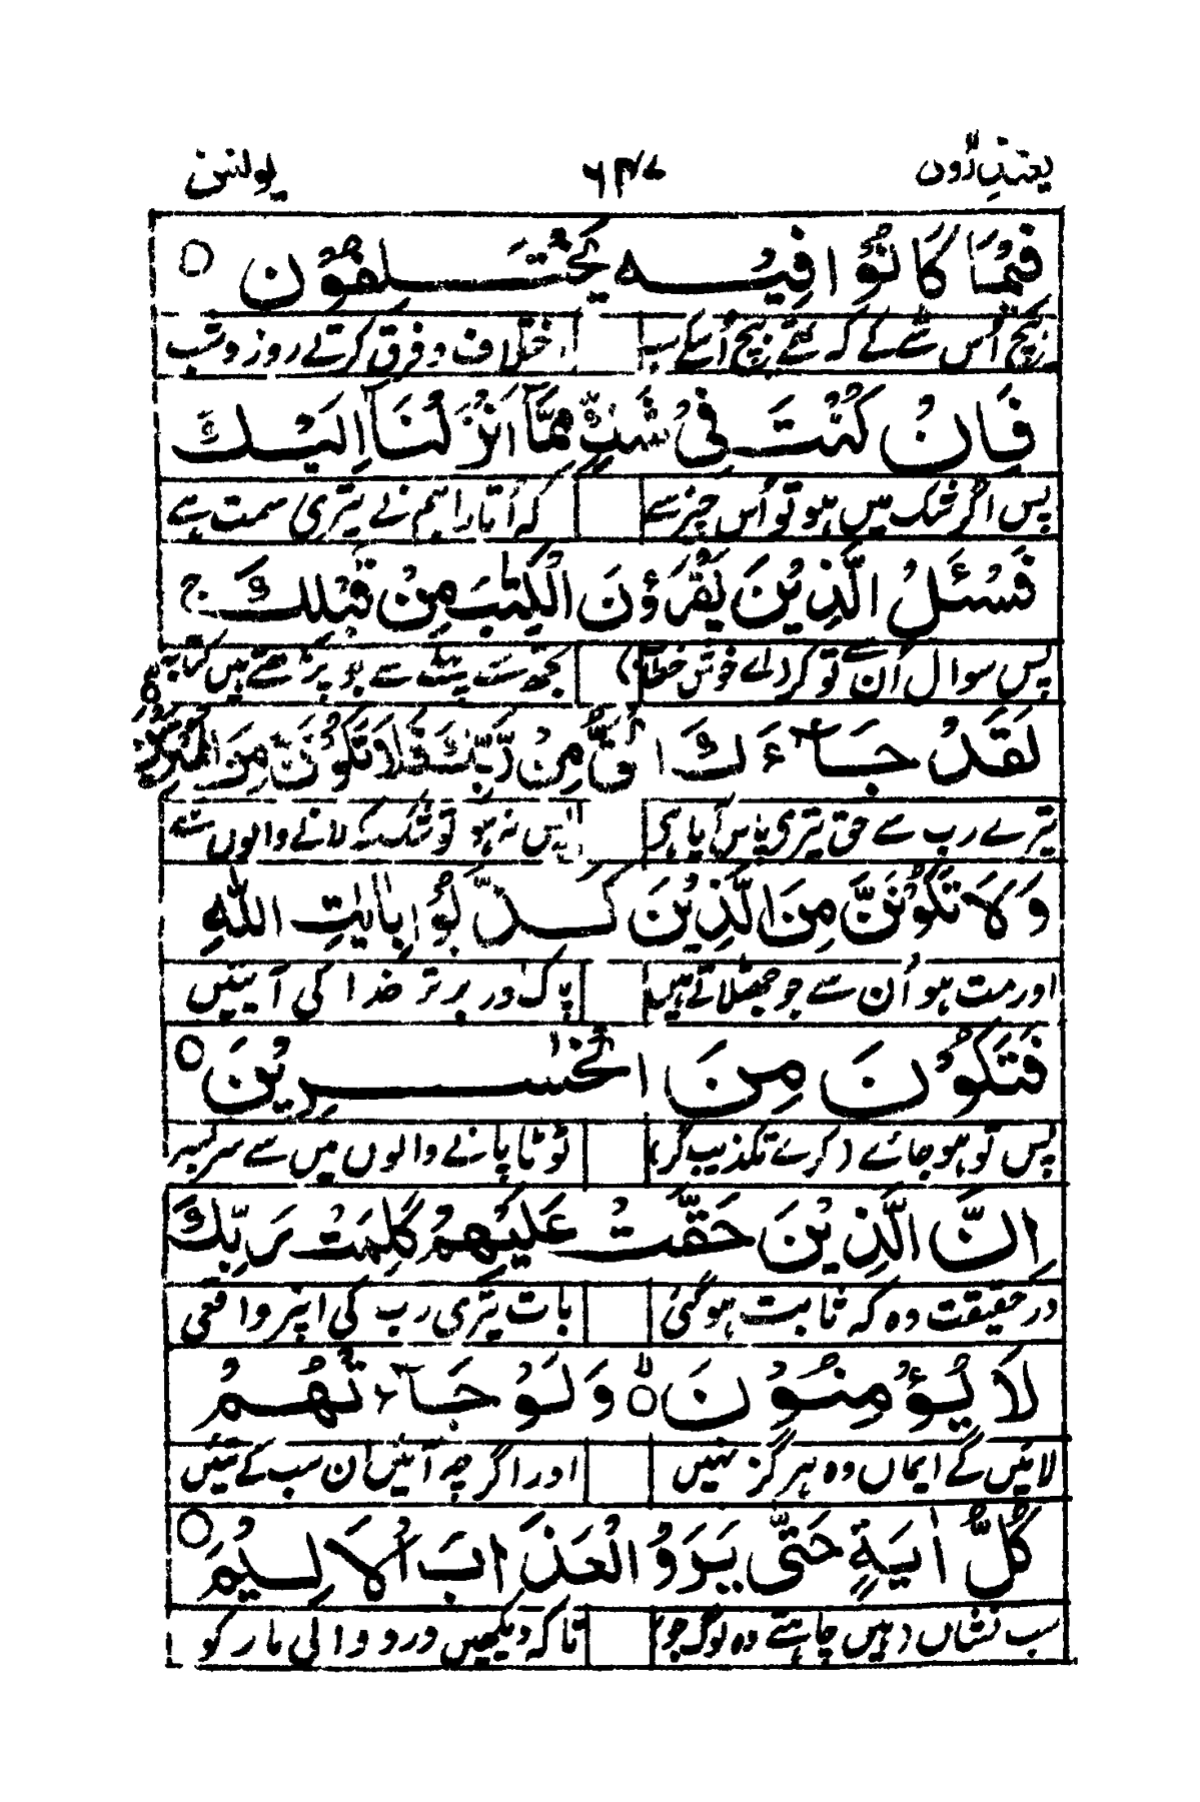 یعتذرون ۶۴۷ یونس
فِيْمَا كَانُوْا فِيْهِ يَخْتَلِفُوْنَ ○
بیچ اُس شے کے کہ تھے بیچ اُسکے سب اختلاف و فرق کرتے روز و شب
فَاِنْ كُنْتَ فِيْ شَكٍّ مِّمَّآ اَنْزَلْنَآ اِلَيْكَ
پس اگر شک میں ہو تو اُس چیز سے کہ اُتارا ہم نے تیری سمت ہے
فَسْئَلِ الَّذِيْنَ يَقْرَءُوْنَ الْكِتٰبَ مِنْ قَبْلِكَ ج
پس سوال اُن سے تو کر دلے خوش خطاب) تجھ سے پیشتر سے جو پڑھتے ہیں کتاب
لَقَدْ جَآءَكَ الْحَقُّ مِنْ رَّبِّكَ فَلَا تَكُوْنَنَّ مِنَ الْمُمْتَرِيْنَ ○
تیرے رب سے حق تیری پاس آیا ہی پس نہ ہو تو شک کے لانے والوں سے
وَلَا تَكُوْنَنَّ مِنَ الَّذِيْنَ كَذَّبُوْا بِاٰيٰتِ اللّٰهِ
اور مت ہو اُن سے جو جھٹلاتے ہیں پاک اور برتر خدا کی آیتیں
فَتَكُوْنَ مِنَ الْخٰسِرِيْنَ ○
پس تو ہو جائے (کرے تکذیب گر) ٹوٹا پانے والوں میں سے سربسر
اِنَّ الَّذِيْنَ حَقَّتْ عَلَيْهِمْ كَلِمَتُ رَبِّكَ
در حقیقت وہ کہ ثابت ہو گئی بات تیری رب کی اپنر واقعی
لَا يُؤْمِنُوْنَ ○ لا وَلَوْ جَآءَتْهُمْ
لائیں گے ایماں وہ ہرگز نہیں اور اگرچہ آئیں اُن سب کے تئیں
كُلُّ اٰيَةٍ حَتّٰى يَرَوُا الْعَذَابَ الْاَلِيْمَ ○
سب نشاں (ہیں چاہتے وہ لوگ جو) تا کہ دیکھیں درد والی مار کو